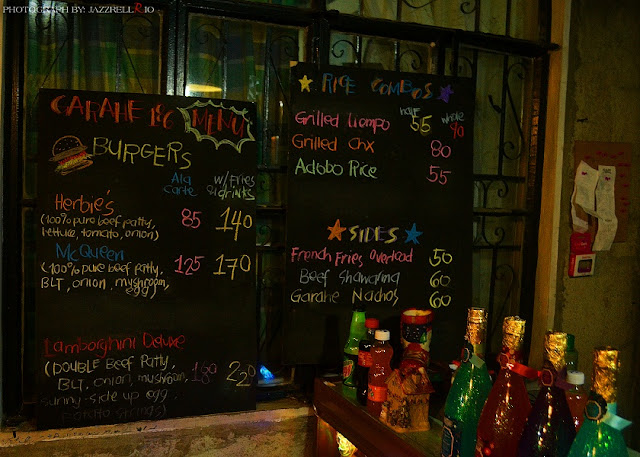 PHOTOGRAPH BY: JAZZRELL RIO
GARAHE 186 MENU
BURGERS
Ala Carte w/ Fries & drinks
Herbie's 85 140
(100% pure beef patty,
lettuce, tomato, onion)
McQueen 125 170
(100% pure beef patty,
BLT, onion, mushroom,
egg)
Lamborghini Deluxe
(DOUBLE Beef Patty, 189 220
BLT, onion, mushroom,
sunny-side up egg
RICE COMBOS
half whole
Grilled Liempo 55 90
Grilled Chx 80
Adobo Rice 55
SIDES
French Fries Overload 50
Beef Shawarma 60
Garahe Nachos 60